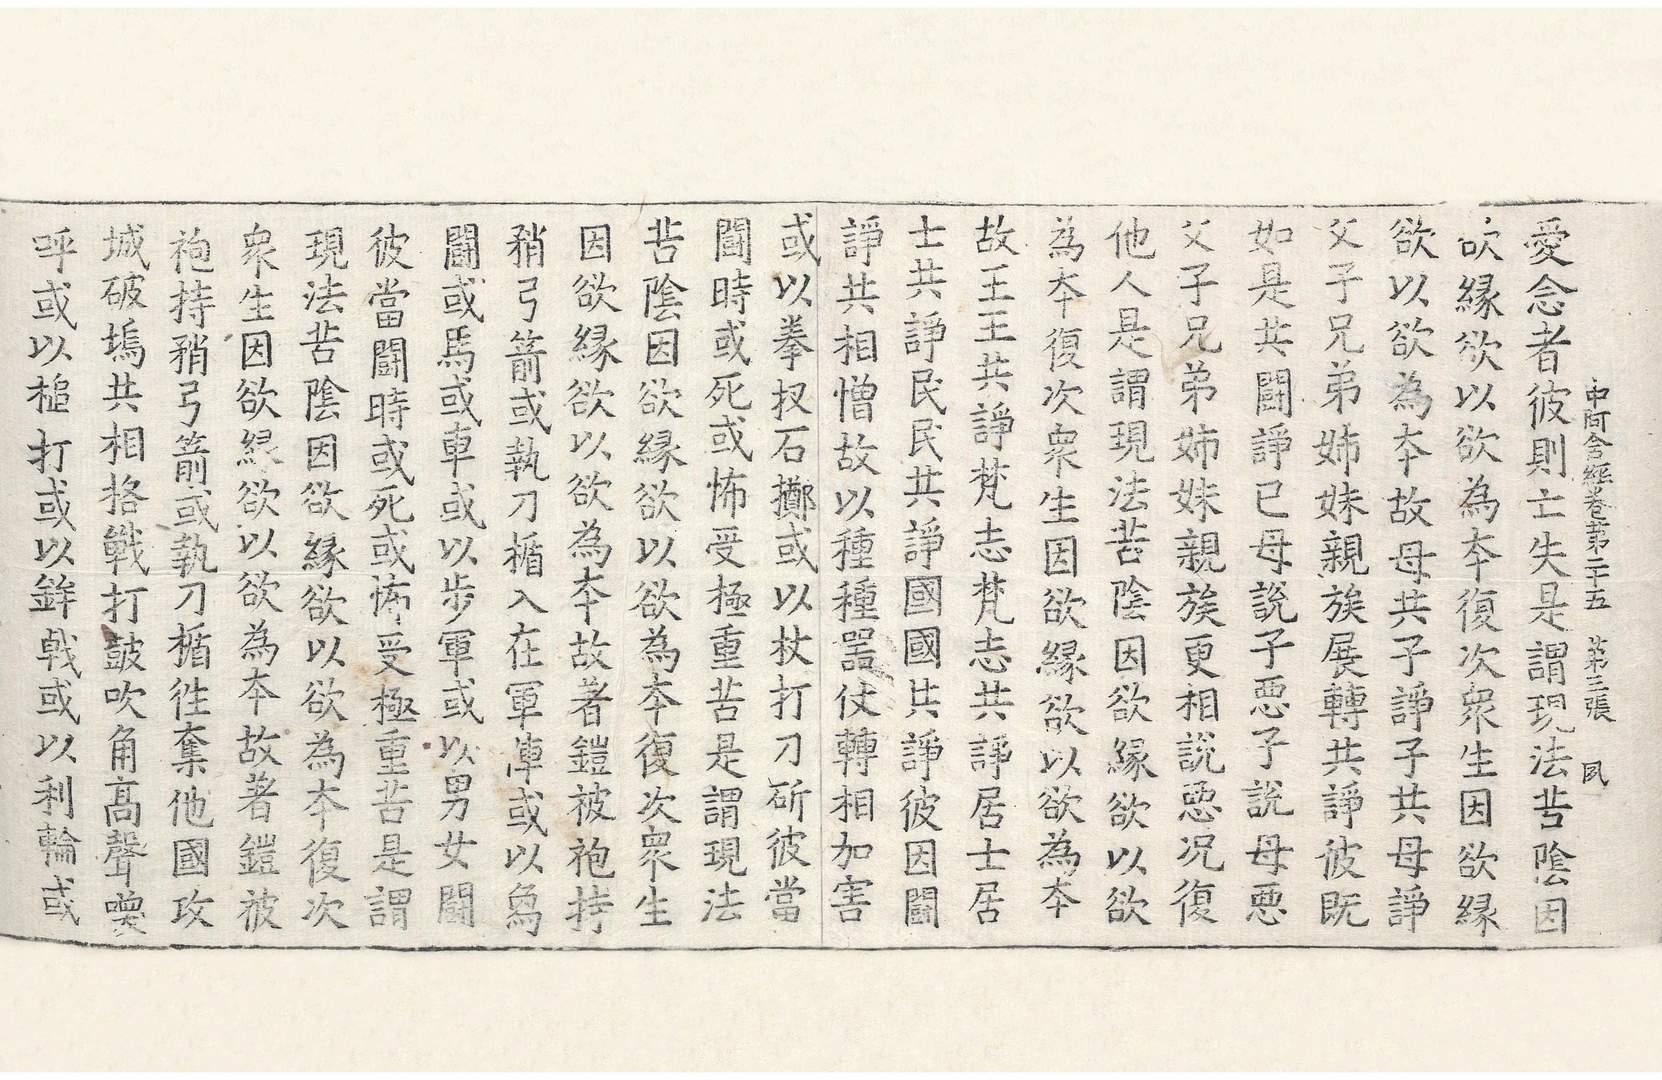 中阿含經卷第二十五 第三張 夙
愛念者彼則亡失是謂現法苦陰因
欲縁欲以欲為夲復次衆生因欲縁
欲以欲為夲故母共子諍子共母諍
父子兄弟姉妹親族展轉共諍彼既
如是共鬪諍已母說子惡子說母惡
父子兄弟姉妹親族更相說惡况復
他人是謂現法苦陰因欲縁欲以欲
為夲復次衆生因欲縁欲以欲為夲
故王王共諍梵志梵志共諍居士居
士共諍民民共諍國國共諍彼因鬪
諍共相憎故以種種器仗轉相加害
或以拳扠石擲或以杖打刀斫彼當
鬪時或死或怖受極重苦是謂現法
苦陰因欲縁欲以欲為夲復次衆生
因欲縁欲以欲為夲故著鎧被袍持
矟弓箭或執刀楯入在軍陣或以象
鬪或馬或車或以步軍或以男女鬪
彼當鬪時或死或怖受極重苦是謂
現法苦陰因欲縁欲以欲為夲復次
衆生因欲縁欲以欲為夲故著鎧被
袍持矟弓箭或執刀楯徃奪他國攻
城破塢共相格戰打鼓吹角髙聲喚
呼或以槌打或以鉾戟或以利輪或